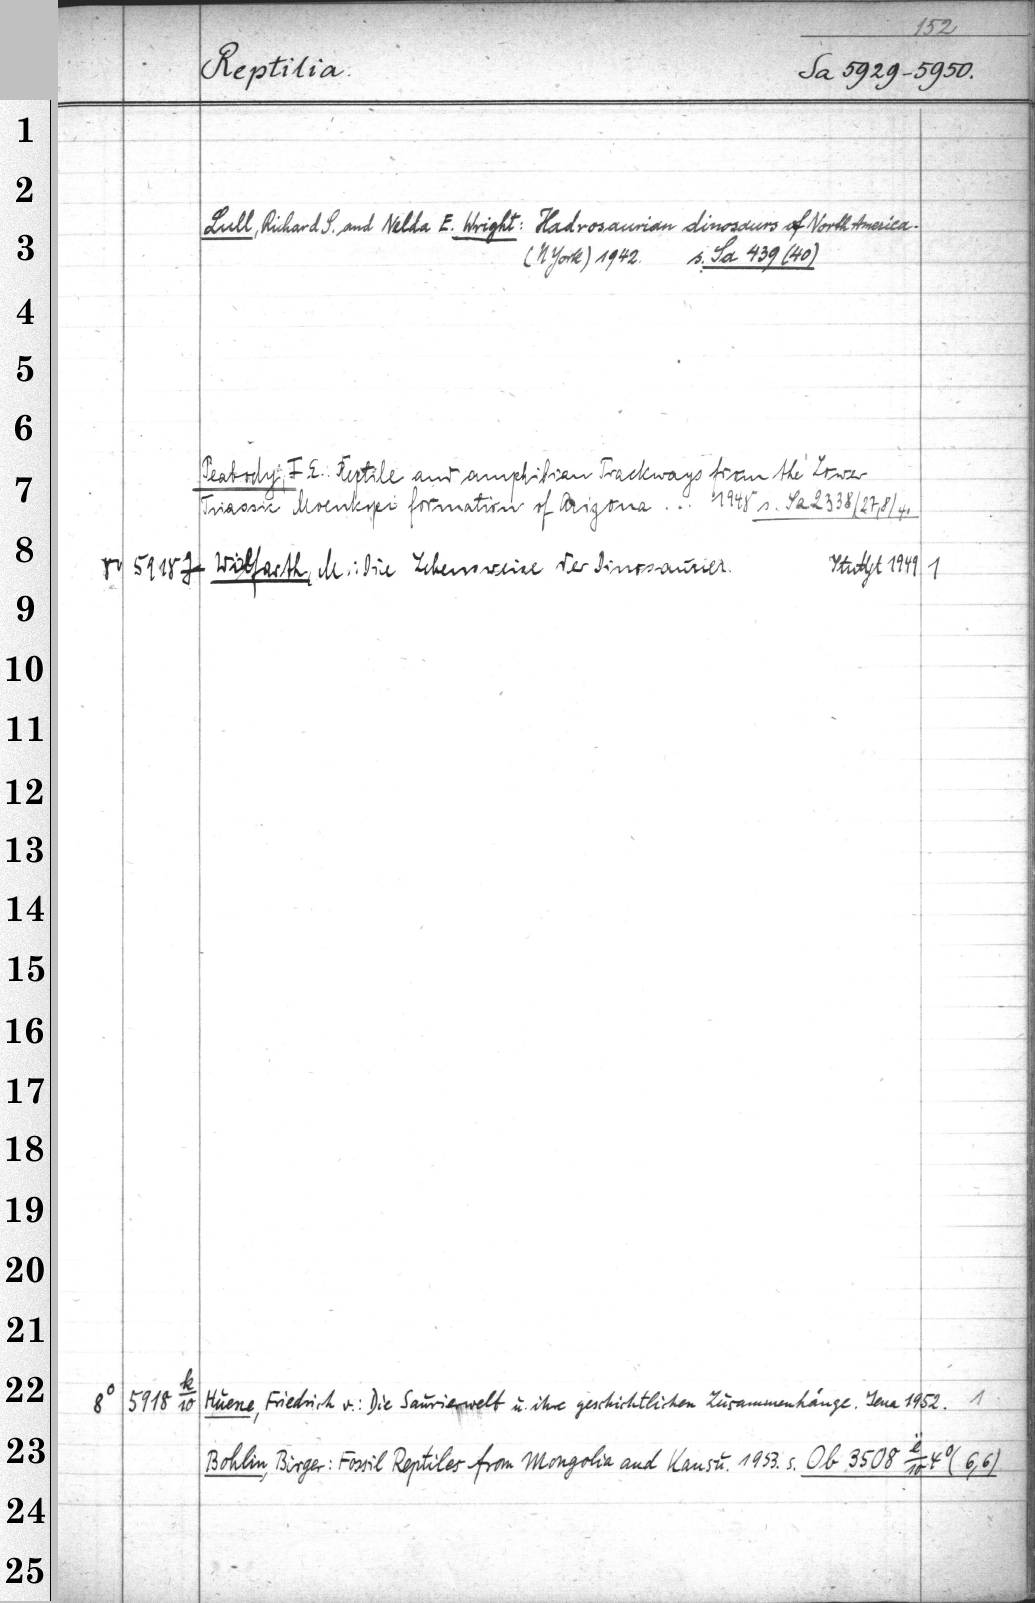 152
Reptilia.
Sa 5929-5950.
1
2
Lull, Richard S. and Nelda E. Wright: Hadrosaurian dinosaurs of North America.
3
(N York) 1942. s. Sa 439 (40)
4
5
6
Peabody, F E.: Reptile and amphibian Trackways from the Lower
7
Triassic Moenkopi formation of Arizona ... 1948 s. Sa 2338/27,8/4°
8
8° 5918 Wilfarth, M.: Die Lebensweise der Dinosaurier. Stuttgt 1949 1
9
10
11
12
13
14
15
16
17
18
19
20
21
22
8° 5918 k/10 Huene, Friedrich v.: Die Saurierwelt u. ihre geschichtlichen Zusammenhänge. Jena 1952. 1
23
Bohlin, Birger: Fossil Reptiles from Mongolia and Kansu. 1953. s. Ob 3508 i/10 4° (6,6)
24
25